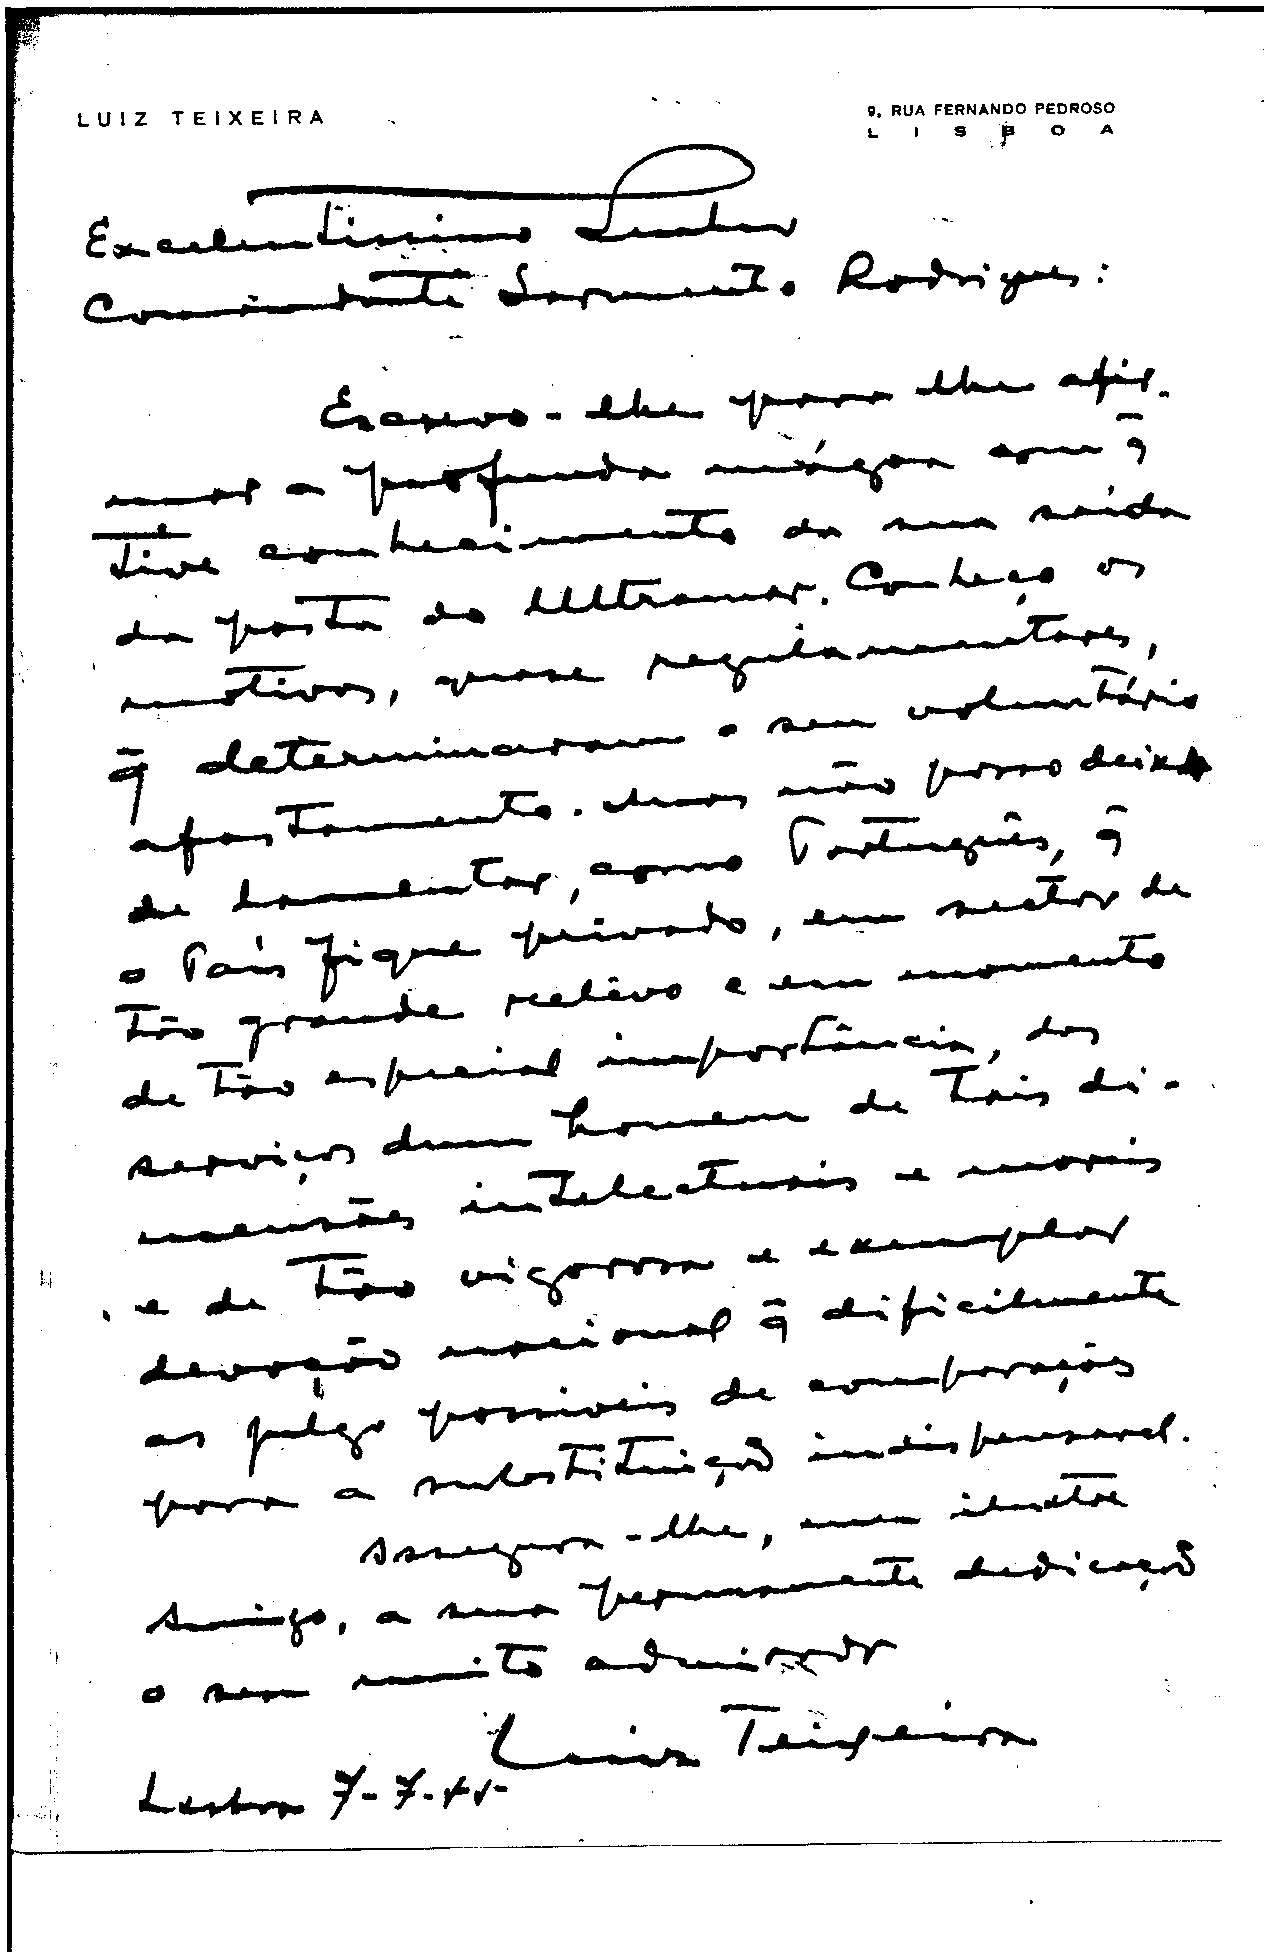 LUIZ TEIXEIRA
9, RUA FERNANDO PEDROSO
LISBOA
Excelentissimo Senhor
Comandante Sarmento Rodrigues:
Escrevo-lhe para lhe afir-
mar a profunda mágoa com q̃
tive conhecimento da sua saída
da pasta do Ultramar. Conheço os
motivos, quase regulamentares,
q̃ determinaram o seu voluntário
afastamento. Mas não posso deixar
de lamentar, como Português, q̃
o País fique privado, em sector de
tão grande relêvo e em momento
de tão especial importância, dos
serviços dum homem de tais di-
mensões intelectuais e morais
e de tão vigorosa e exemplar
devoção nacional q̃ dificilmente
as julgo possiveis de comparações
para a substituição indispensavel.
Assegura-lhe, meu ilustre
Amigo, a sua permanente dedicação
o seu muito admirador
Luiz Teixeira
Lisboa 7-7-55-